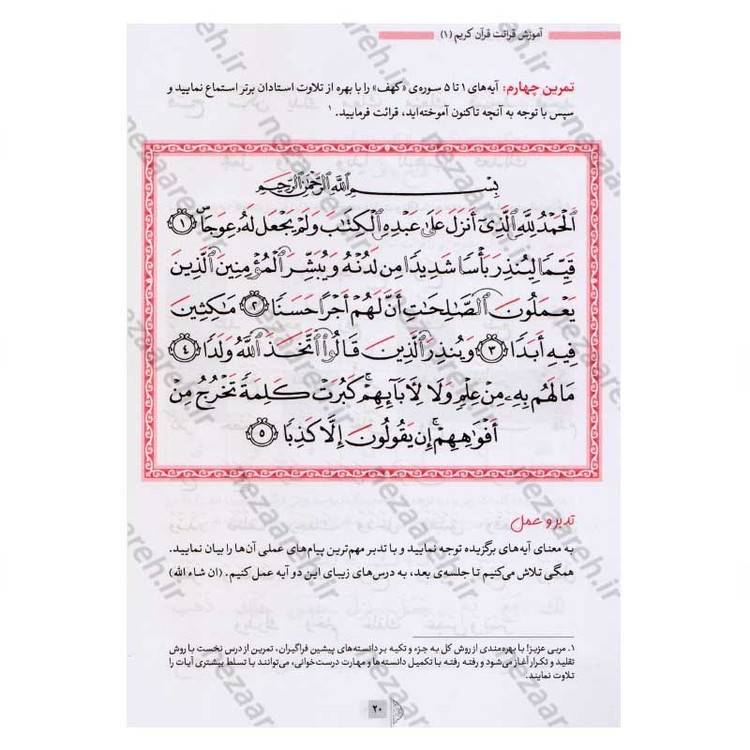 آموزش قرائت قرآن کریم (۱)
تمرین چهارم: آیه‌های ۱ تا ۵ سوره‌ی «کهف» را با بهره از تلاوت استادان برتر استماع نمایید و
سپس با توجه به آنچه تاکنون آموخته‌اید، قرائت فرمایید. ۱
بِسْمِ اللَّهِ الرَّحْمَٰنِ الرَّحِيمِ
اَلْحَمْدُ لِلَّهِ الَّذِیٓ أَنزَلَ عَلَىٰ عَبْدِهِ الْكِتَٰبَ وَلَمْ يَجْعَل لَهُ عِوَجَاۜ ﴿١﴾
قَيِّمًا لِيُنذِرَ بَأْسًا شَدِيدًا مِن لَدُنْهُ وَيُبَشِّرَ الْمُؤْمِنِينَ الَّذِينَ
يَعْمَلُونَ الصَّالِحَاتِ أَنَّ لَهُمْ أَجْرًا حَسَنًا ﴿٢﴾ مَاكِثِينَ
فِيهِ أَبَدًا ﴿٣﴾ وَيُنذِرَ الَّذِينَ قَالُوا اتَّخَذَ اللَّهُ وَلَدًا ﴿٤﴾
مَا لَهُم بِهِ مِنْ عِلْمٍ وَلَا لِآبَائِهِمْ ۚ كَبُرَتْ كَلِمَةً تَخْرُجُ مِنْ
أَفْوَاهِهِمْ ۚ إِن يَقُولُونَ إِلَّا كَذِبًا ﴿٥﴾
تدبر و عمل
به معنای آیه‌های برگزیده توجه نمایید و با تدبر مهم‌ترین پیام‌های عملی آن‌ها را بیان نمایید.
همگی تلاش می‌کنیم تا جلسه‌ی بعد، به درس‌های زیبای این دو آیه عمل کنیم. (ان شاء الله)
۱. مربی عزیز! با بهره‌مندی از روش کل به جزء و تکیه بر دانسته‌های پیشین فراگیران، تمرین از درس نخست با روش
تقلید و تکرار آغاز می‌شود و رفته رفته با تکمیل دانسته‌ها و مهارت درست‌خوانی، می‌توانند با تسلط بیشتری آیات را
تلاوت نمایند.
۲۰
nezaareh.ir